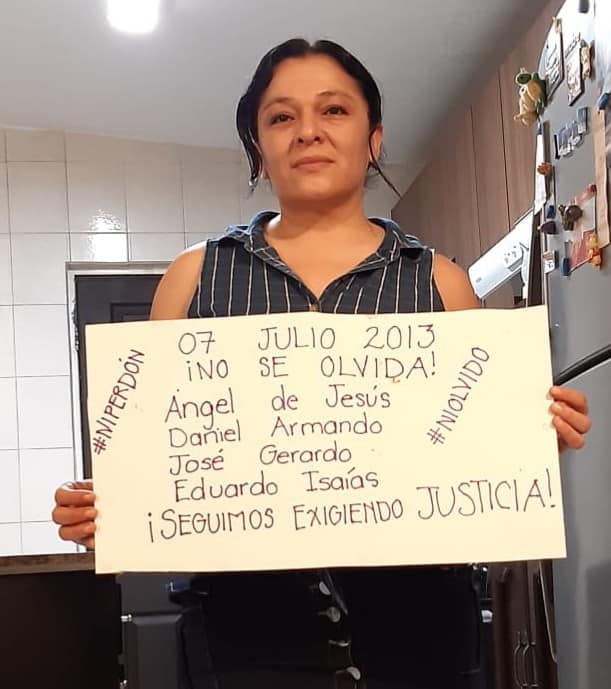 07 JULIO 2013
¡NO SE OLVIDA!
#NIPERDÓN
Ángel de Jesús
Daniel Armando
José Gerardo
Eduardo Isaías
#NIOLVIDO
¡SEGUIMOS EXIGIENDO JUSTICIA!